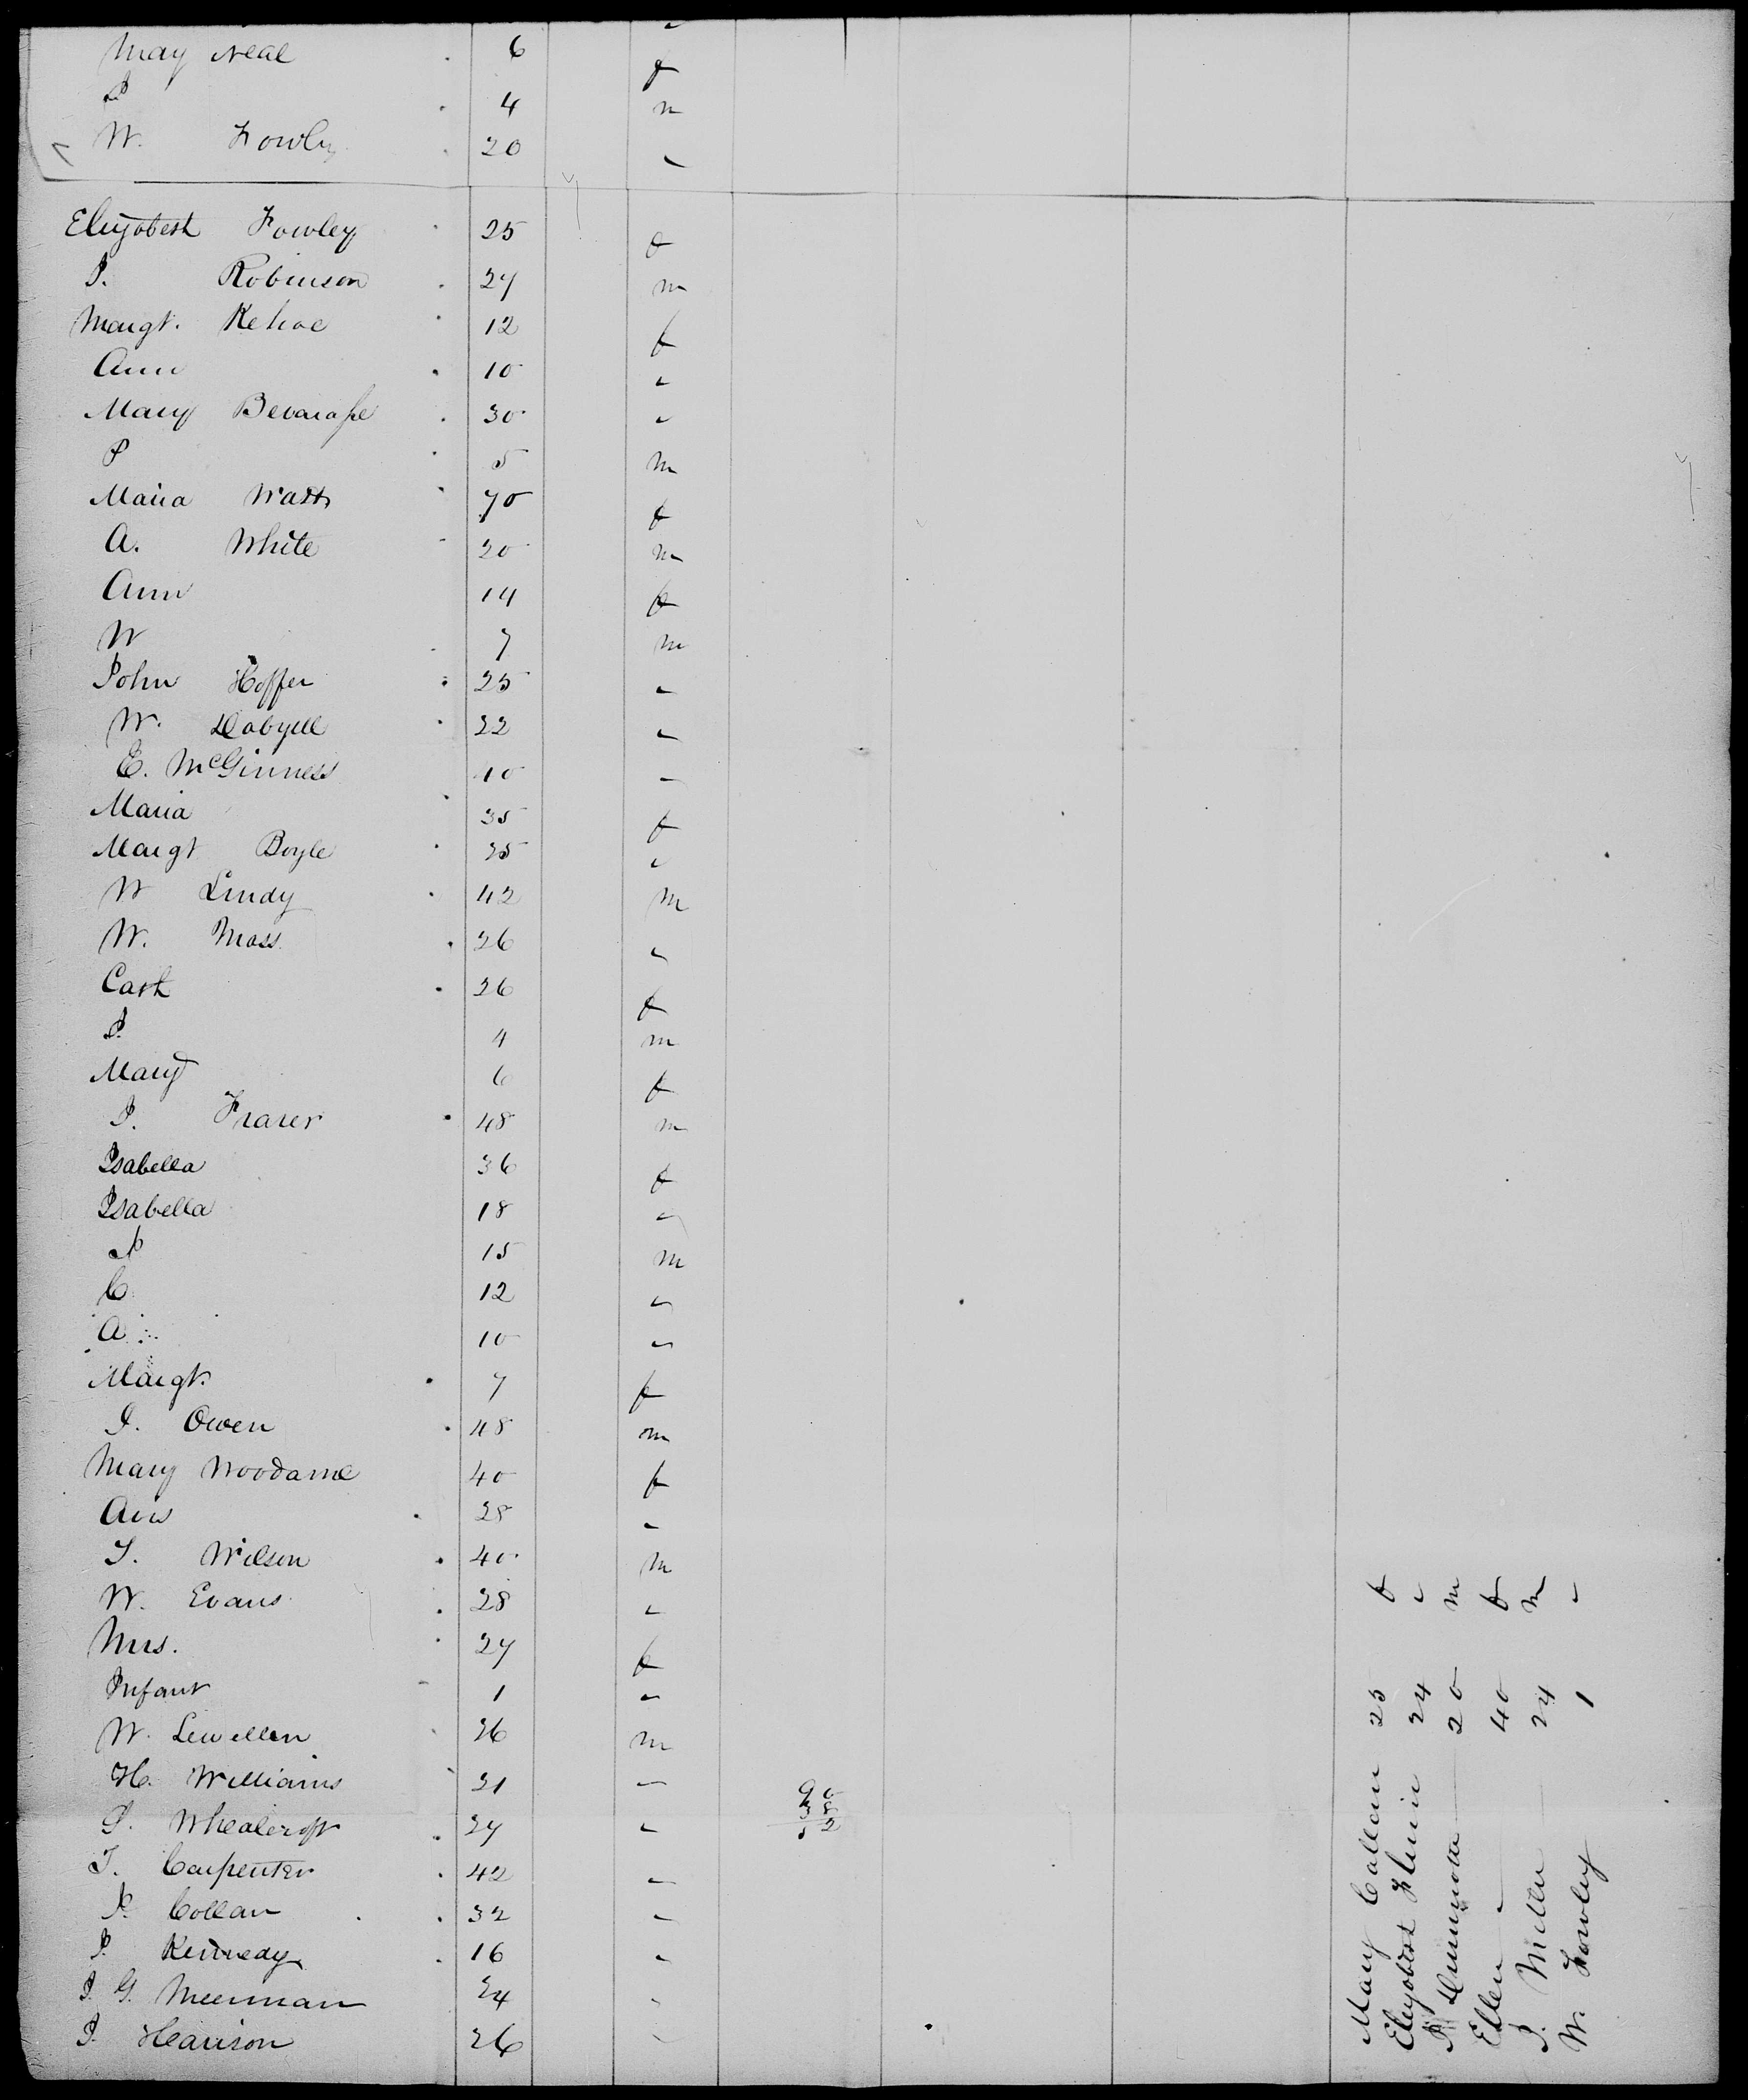 May Neal 6 f
P 4 m
W. Fowley 20 "
Elizabeth Fowley 25 f
J. Robinson 27 m
Margt. Kehoe 12 f
Ann 10 "
Mary 30 "
P 5 m
Maria Watts 70 f
A. White 20 m
Ann 14 f
W 7 m
John Hoffer 25 "
W. Dabyell 22 "
E. McGinness 10 "
Maria 35 f
Margt Boyle 25 "
W Lindy 42 m
W. Moss 26 "
Cath 26 f
J. 4 m
Mary 6 f
J. Fraser 48 m
Isabella 36 f
Isabella 18 "
N 15 m
C 12 "
A 10 "
Margt. 7 f
J. Owen 48 m
Mary 40 f
Ann 28 "
T. Wilson 40 m
W. Evans 28 "
Mrs. 27 f
Infant 1 "
W. Lewellen 26 m
H. Williams 21 "
S. Whealcroft 27 "
T. Carpenter 42 "
P. Collan 32 "
J. Kennedy 16 "
J. G. Meerman 24 "
J. Harrison 26 "
Mary Callan 25 f
Elizabeth 24 "
20 m
Ellen " 40 f
J. Miller 24 m
W. Fowley 1 "